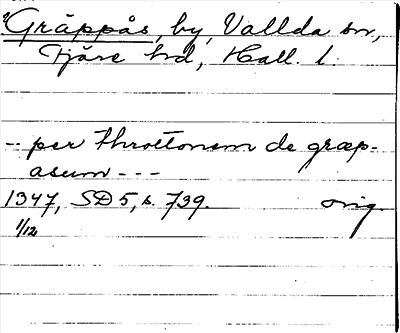 Gräppås, by, Vallda sn,
Fjäre hd, Hall. l.
-- per throttonem de græp-
asum ---
1347, SD 5, s. 739. orig
1/12